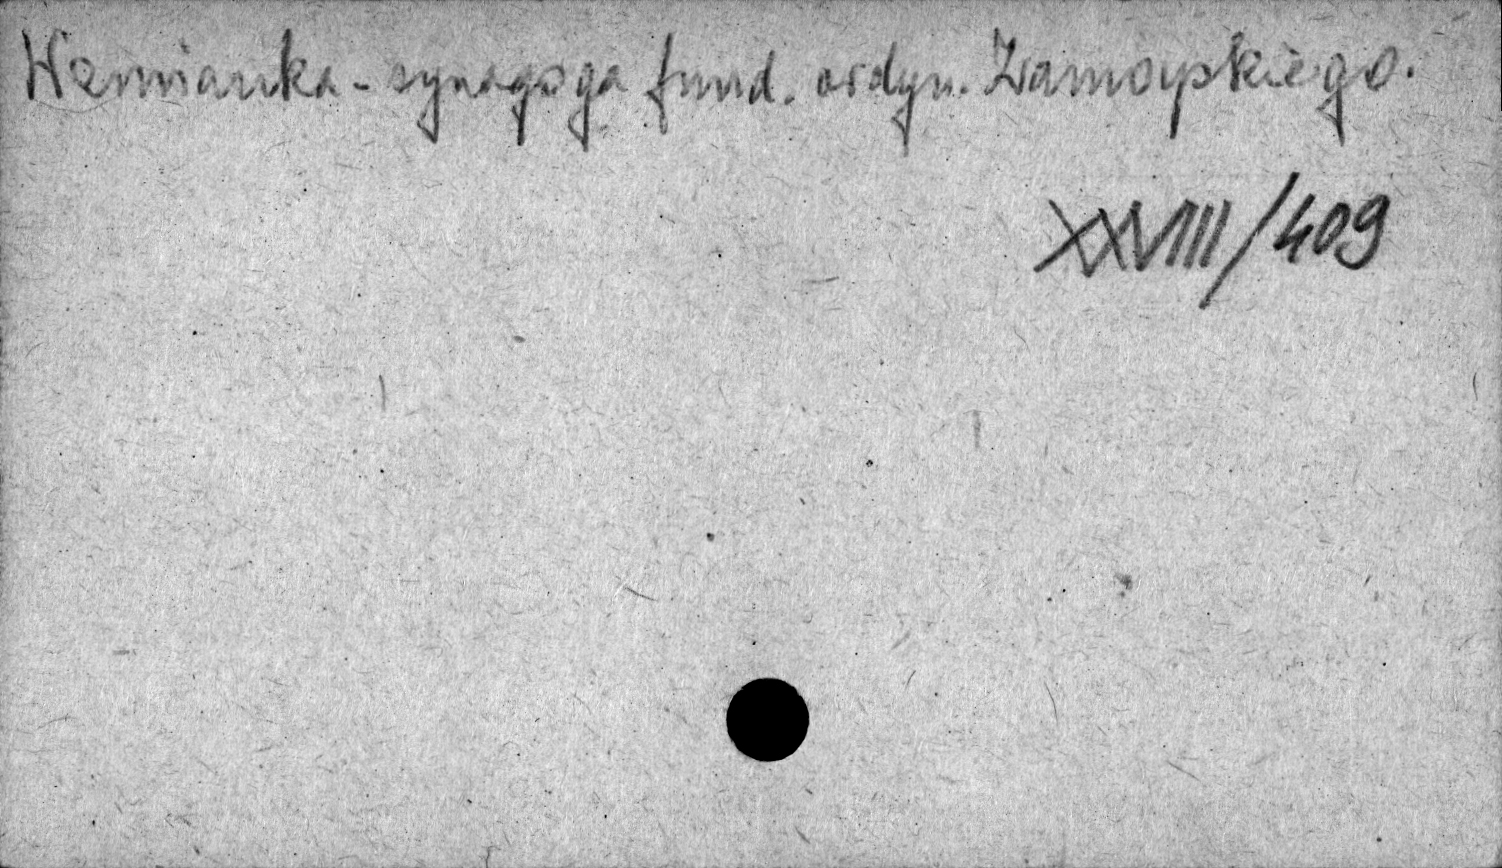 Wemianka - synagoga fund. ordyn. Zamoyskiego.
XXVIII/409